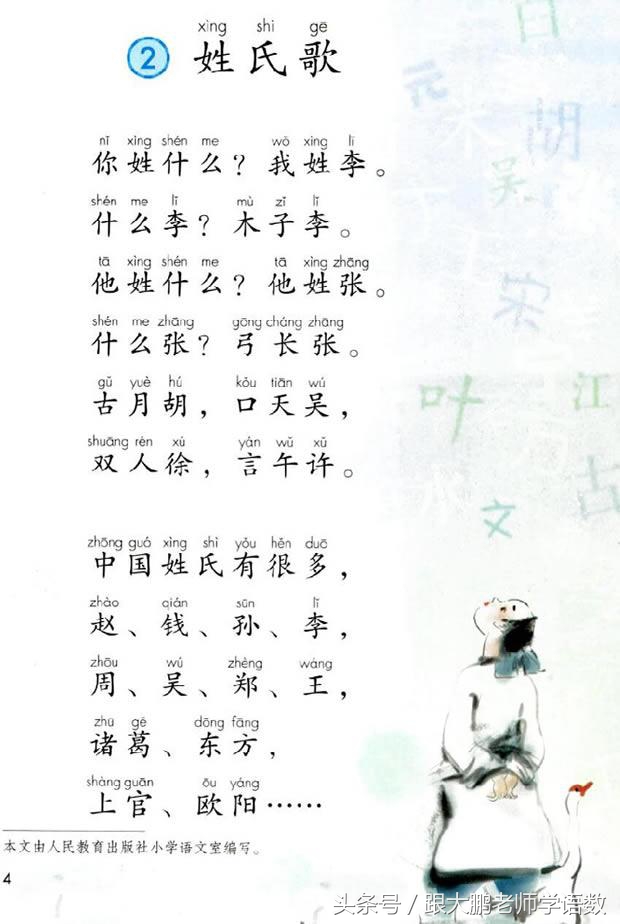 xìng shì gē
2 姓氏歌
nǐ xìng shén me wǒ xìng lǐ
你姓什么？我姓李。
shén me lǐ mù zǐ lǐ
什么李？木子李。
tā xìng shén me tā xìng zhāng
他姓什么？他姓张。
shén me zhāng gōng cháng zhāng
什么张？弓长张。
gǔ yuè hú kǒu tiān wú
古月胡，口天吴，
shuāng rén xú yán wǔ xǔ
双人徐，言午许。
zhōng guó xìng shì yǒu hěn duō
中国姓氏有很多，
zhào qián sūn lǐ
赵、钱、孙、李，
zhōu wú zhèng wáng
周、吴、郑、王，
zhū gě dōng fāng
诸葛、东方，
shàng guān ōu yáng
上官、欧阳……
本文由人民教育出版社小学语文室编写。
4
元
胡
吴
宋
叶
江
古
文
头条号 / 跟大鹏老师学语数